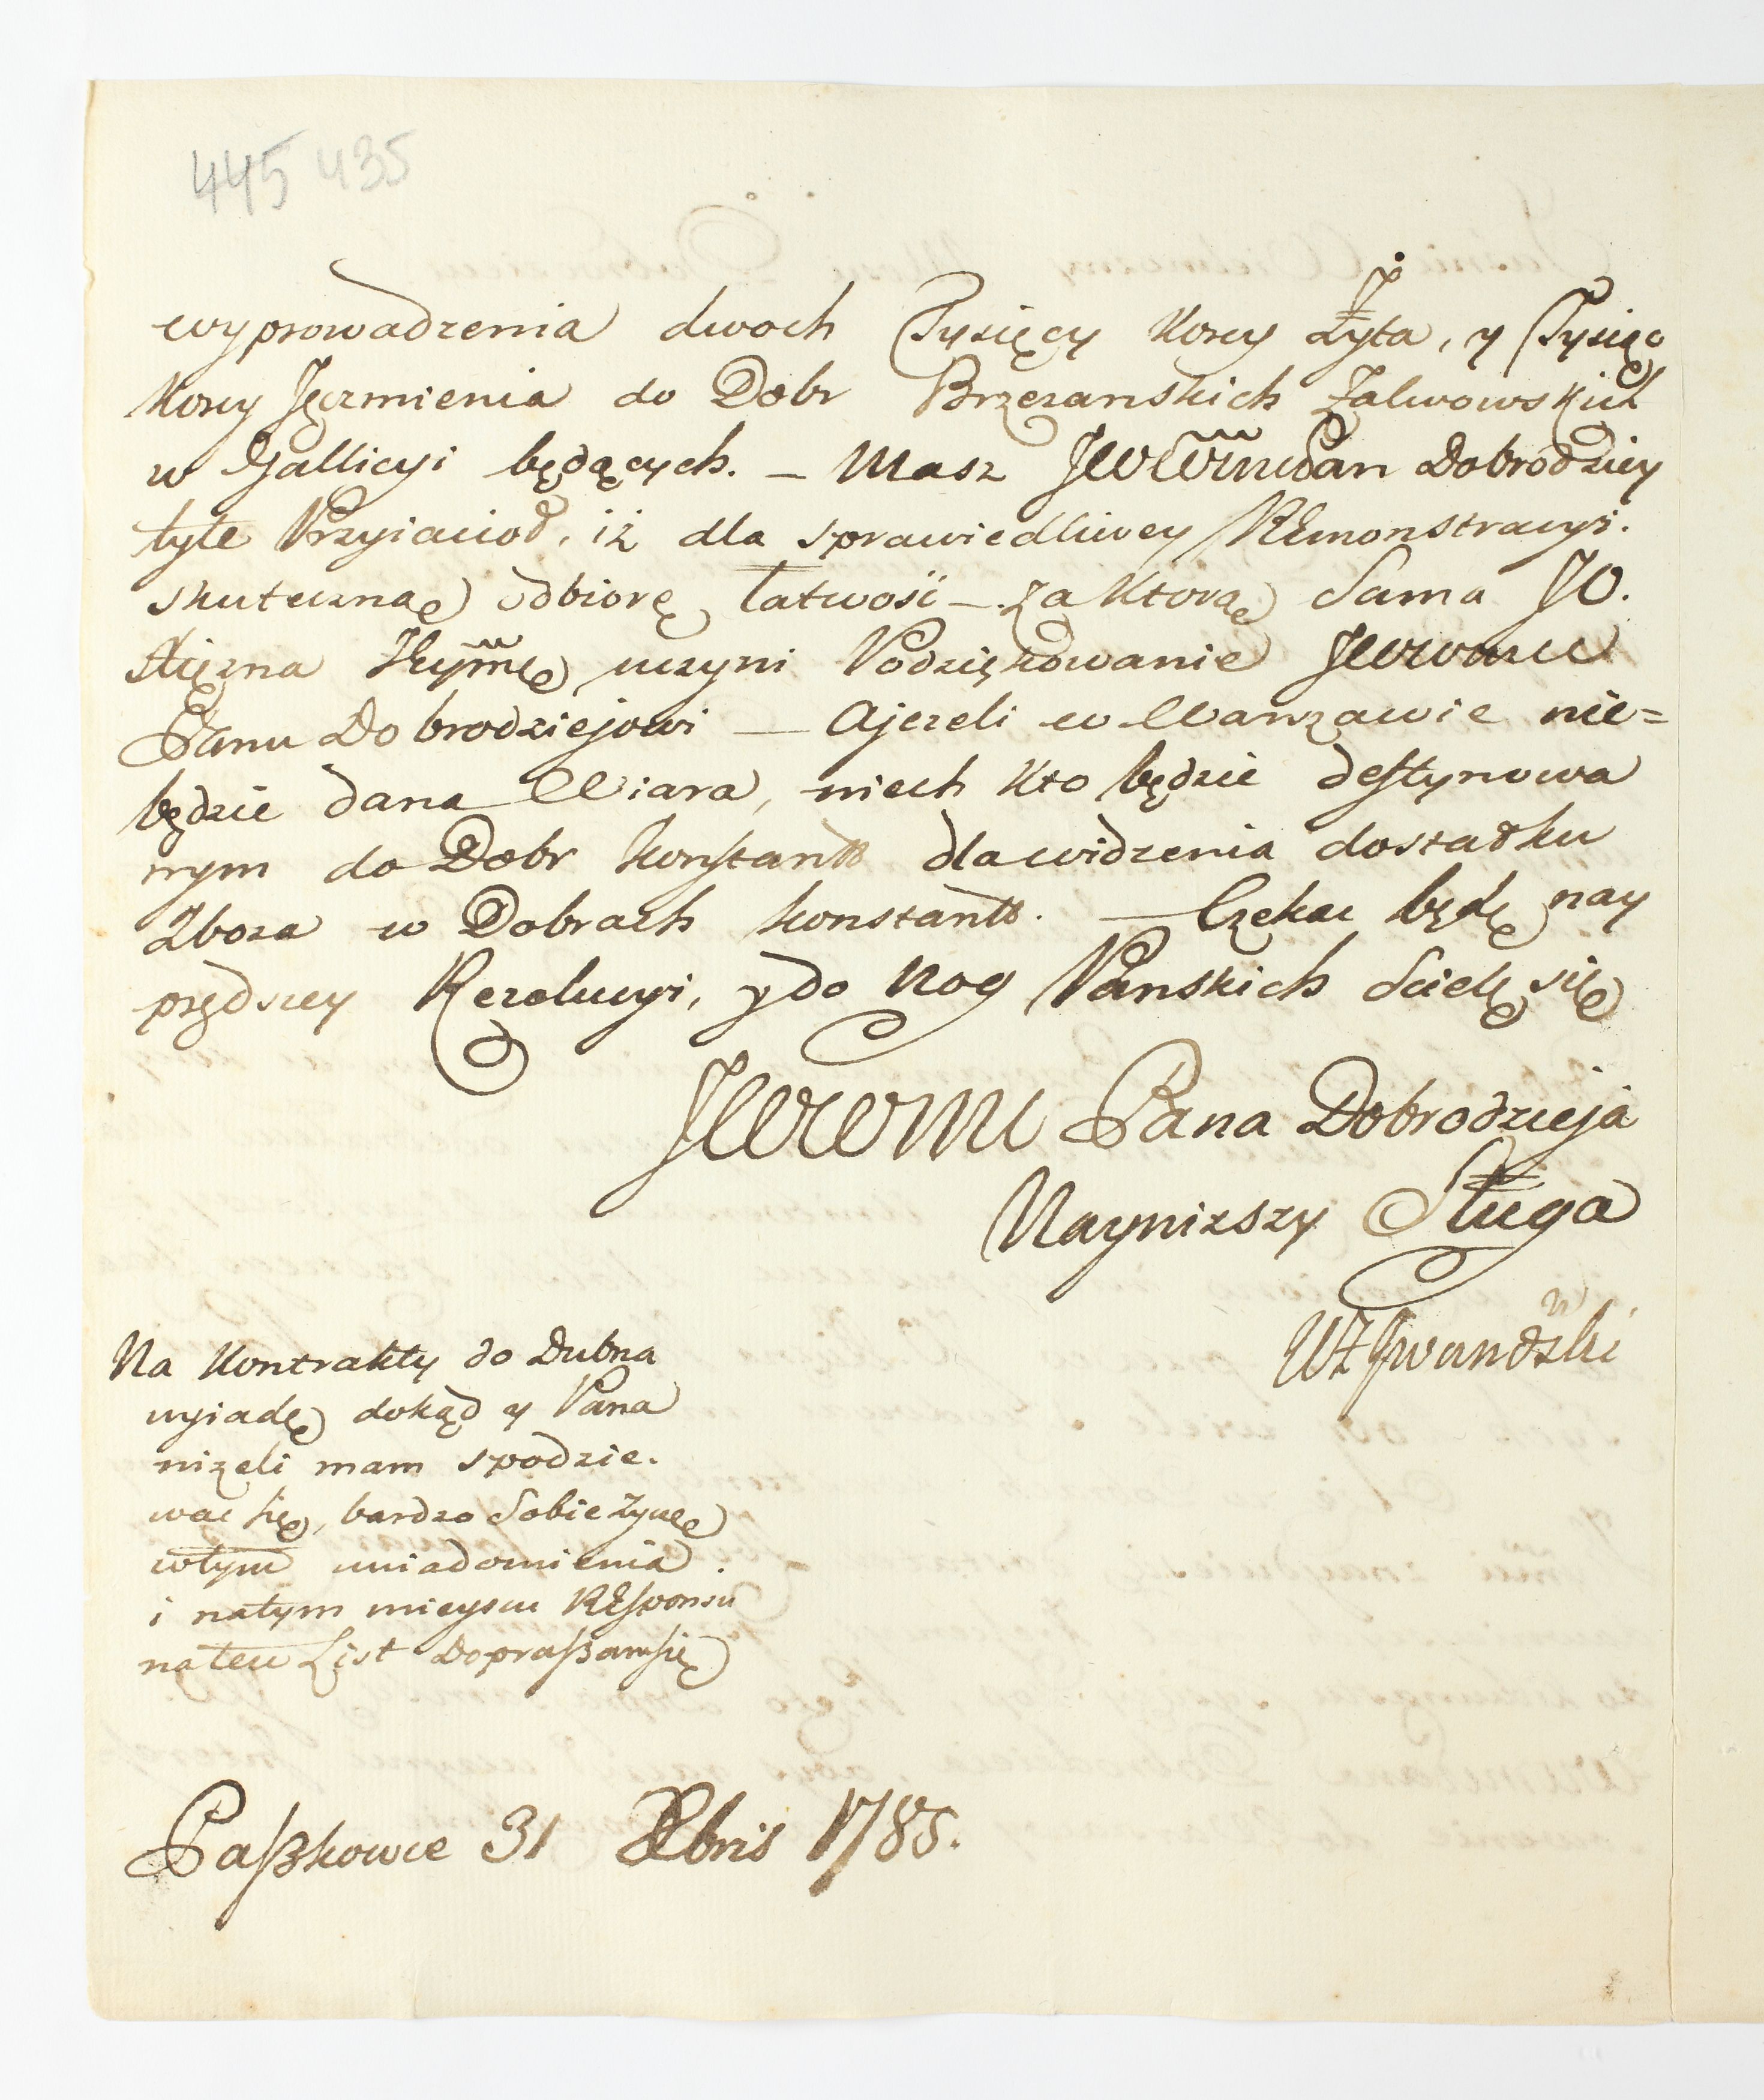 445 435
wyprowadzenia dwoch Tysięcy Korcy Żyta, y Tysiąc
Korcy Jęczmienia do Dobr Brzezanskich Zalwowskich
w Gallicyi będących. — Masz JWWmcPan Dobrodziey
tyle Przyiacioł, iż dla sprawiedliwey REmonstracyi.
skuteczną odbiorę łatwość — za ktorą Sama JO.
Xiężna Jmć uczyni Podziękowanie JWWmu
Panu Dobrodziejowi — Ajezeli w Warszawie nie=
będzie dana Wiara, niech kto będzie destynowa
nym do Dobr Konstantt dlawidzenia dostatku
Zboza w Dobrach Konstantt. — Czekac będę nay
prędszey Rezolucyi, y do Nog Panskich Scielę się
JWWM Pana Dobrodzieja
Naynizszy Sługa
Na Kontrakty do Dubna
wyiadę dokąd y Pana
nizeli mam spodzie.
wac się, bardzo Sobie zyczę
wtym uwiadomienia.
i natym mieyscu REsponsu
naten List Dopraßamsię
Paßkowce 31 Xbris 1785.